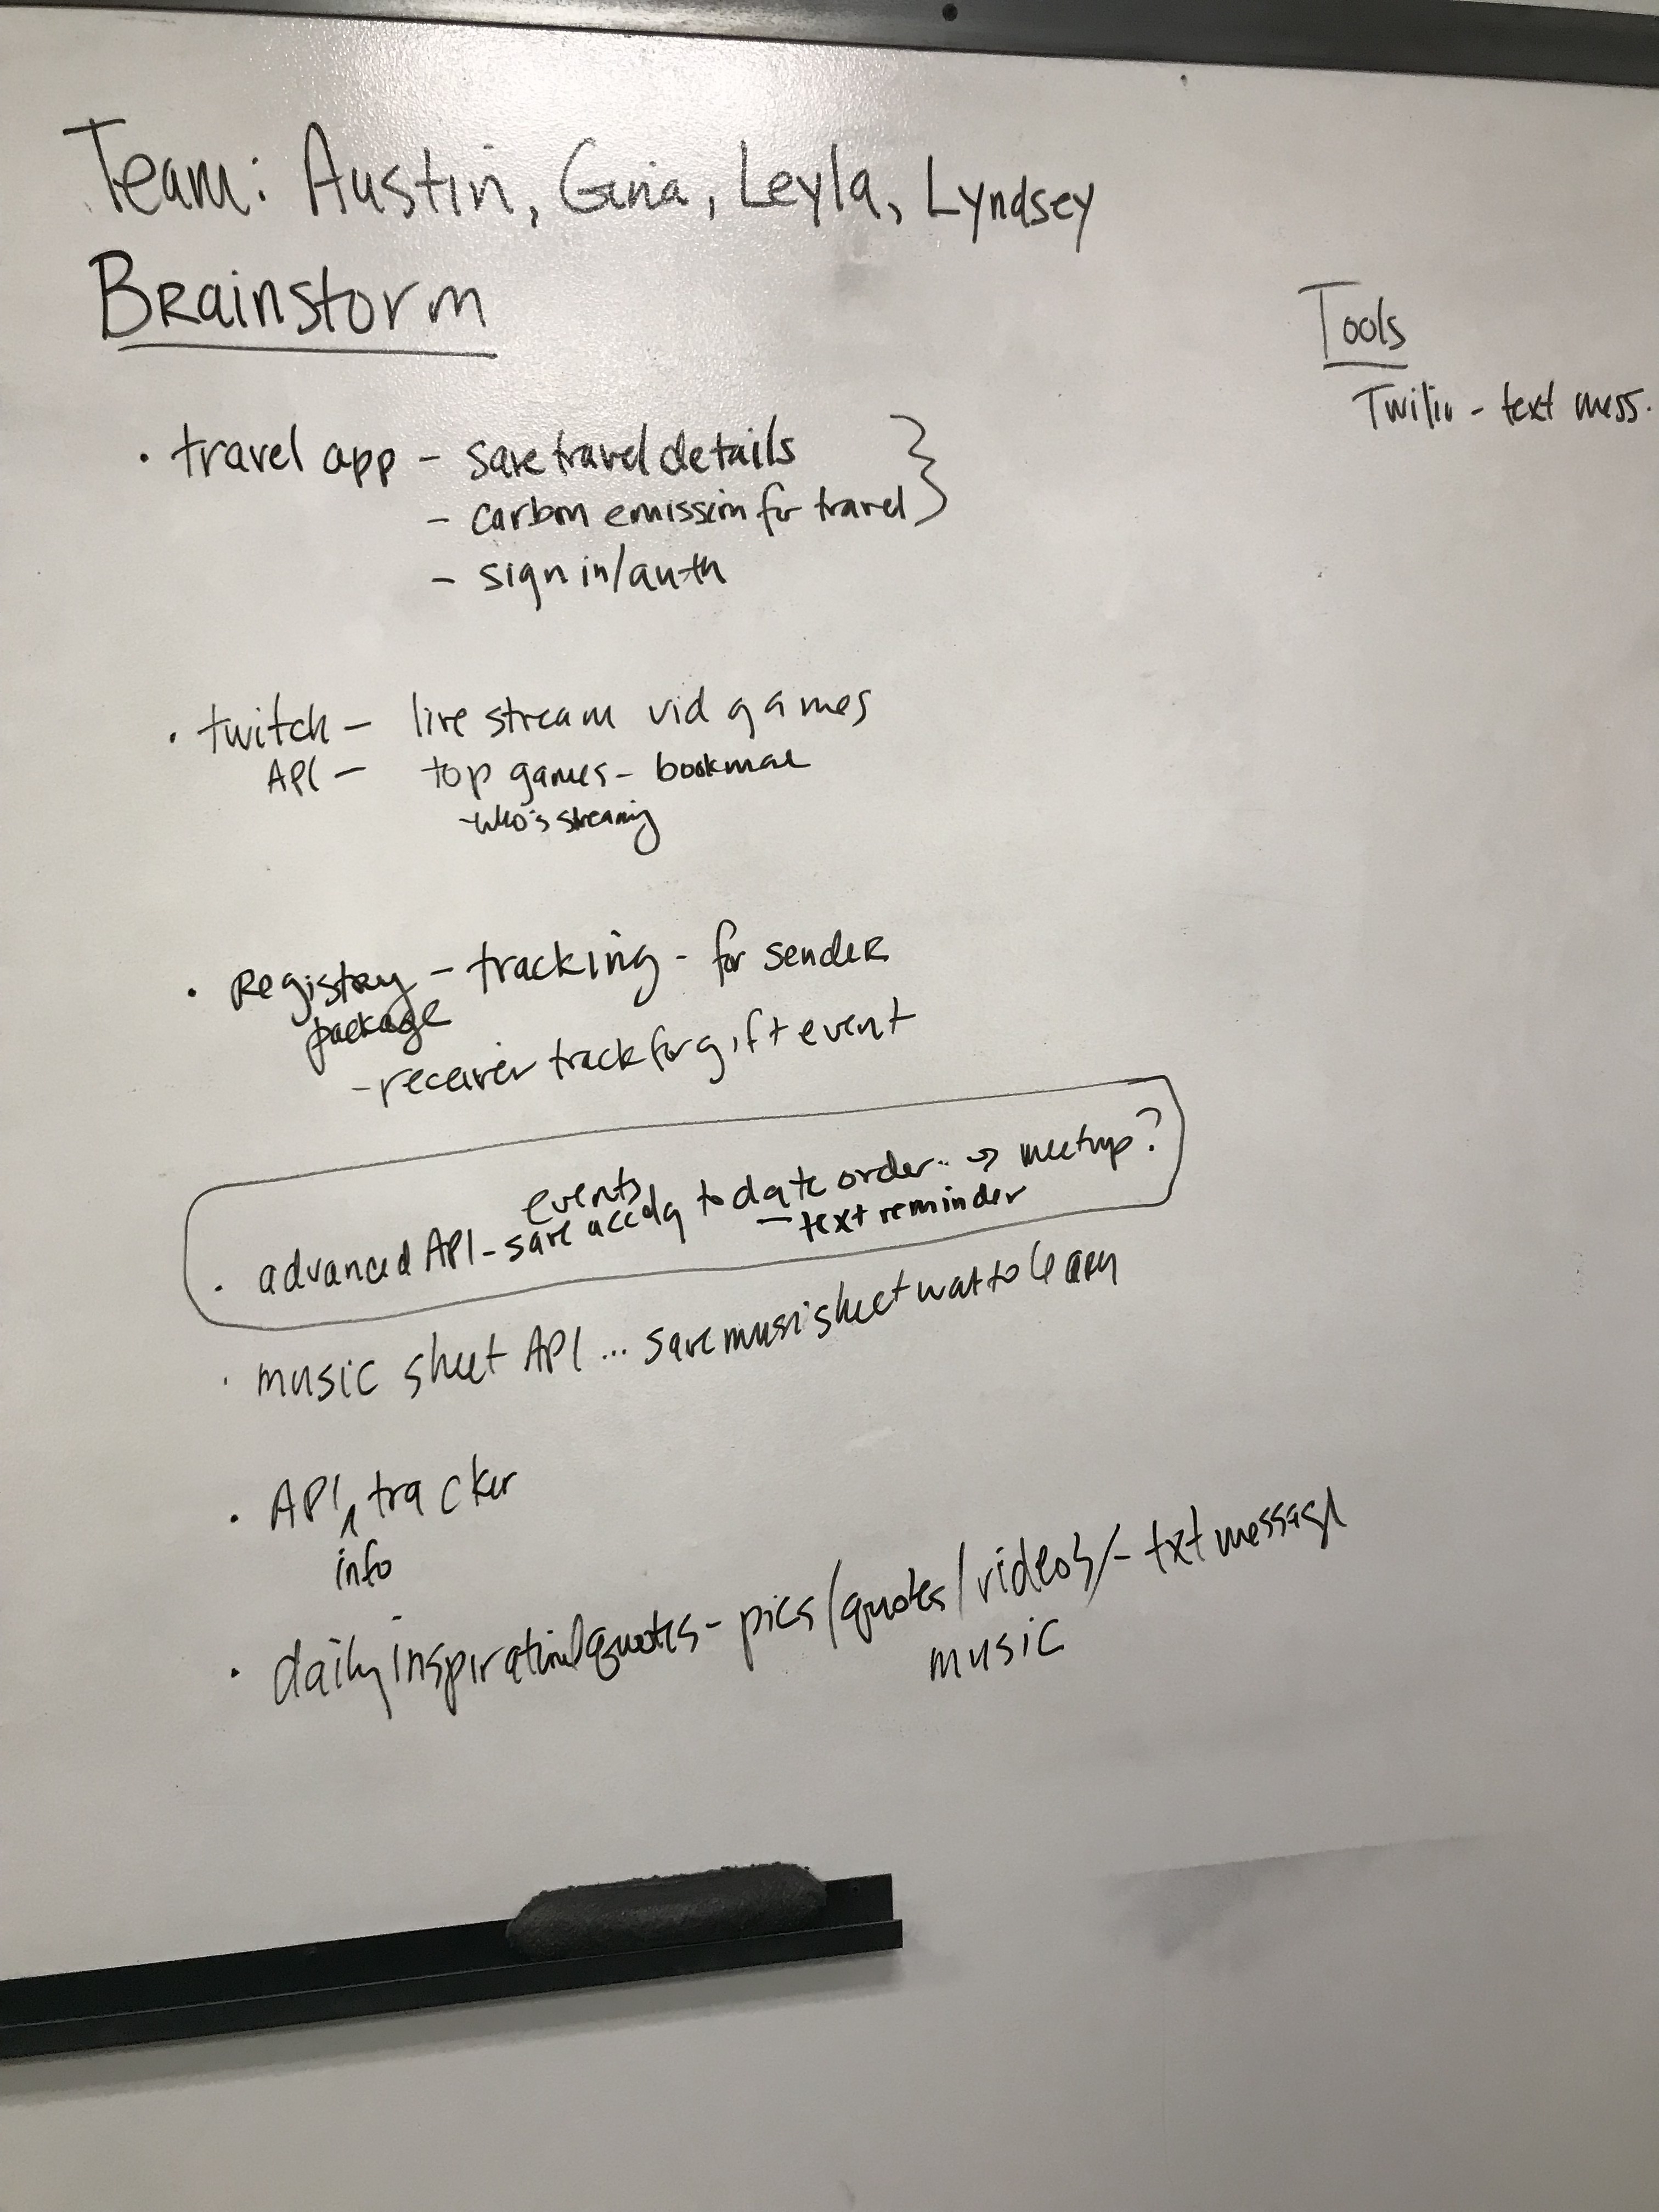 Team: Austin, Gina, Leyla, Lyndsey
Brainstorm
Tools
Twilio - text mess.
• travel app - save travel details
- carbon emission for travel
- sign in/auth
• twitch - live stream vid games
API - top games - bookmar
- who's streaming
• Registry - tracking - for sender
package
- receiver track for gift event
events
• advanced API - save accdg to date order.. → meetup?
- text reminder
• music sheet API ... save musi sheet wat to learn
• API ^ tracker
info
• daily inspirational quotes - pics/quotes/videos/- txt message
music